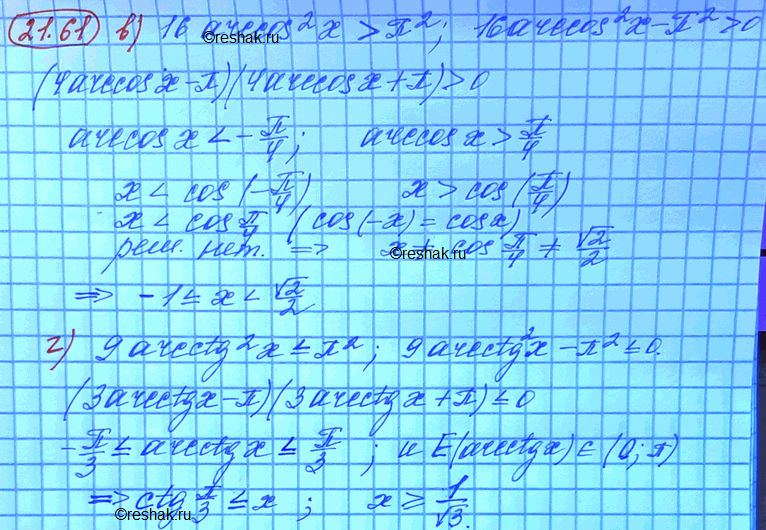 21.61 в) 16 arccos²x > π²; 16arccos²x-π²>0
©reshak.ru
(4arccosx-π)(4arccosx+π)>0
arccosx < -π/4; arccosx > π/4
x < cos(-π/4) x > cos(π/4)
x < cos π/4 (cos(-x) = cosx)
реш. нет. => x ≠ cos π/4 ≠ √2/2
©reshak.ru
=> -1 ≤ x < √2/2
г) 9 arcctg²x ≤ π²; 9 arcctg²x - π² ≤ 0.
(3arcctgx-π)(3arcctgx+π) ≤ 0
-π/3 ≤ arcctgx ≤ π/3; и E(arcctgx) ∈ (0; π)
=> ctg π/3 ≤ x; x ≥ 1/√3.
©reshak.ru